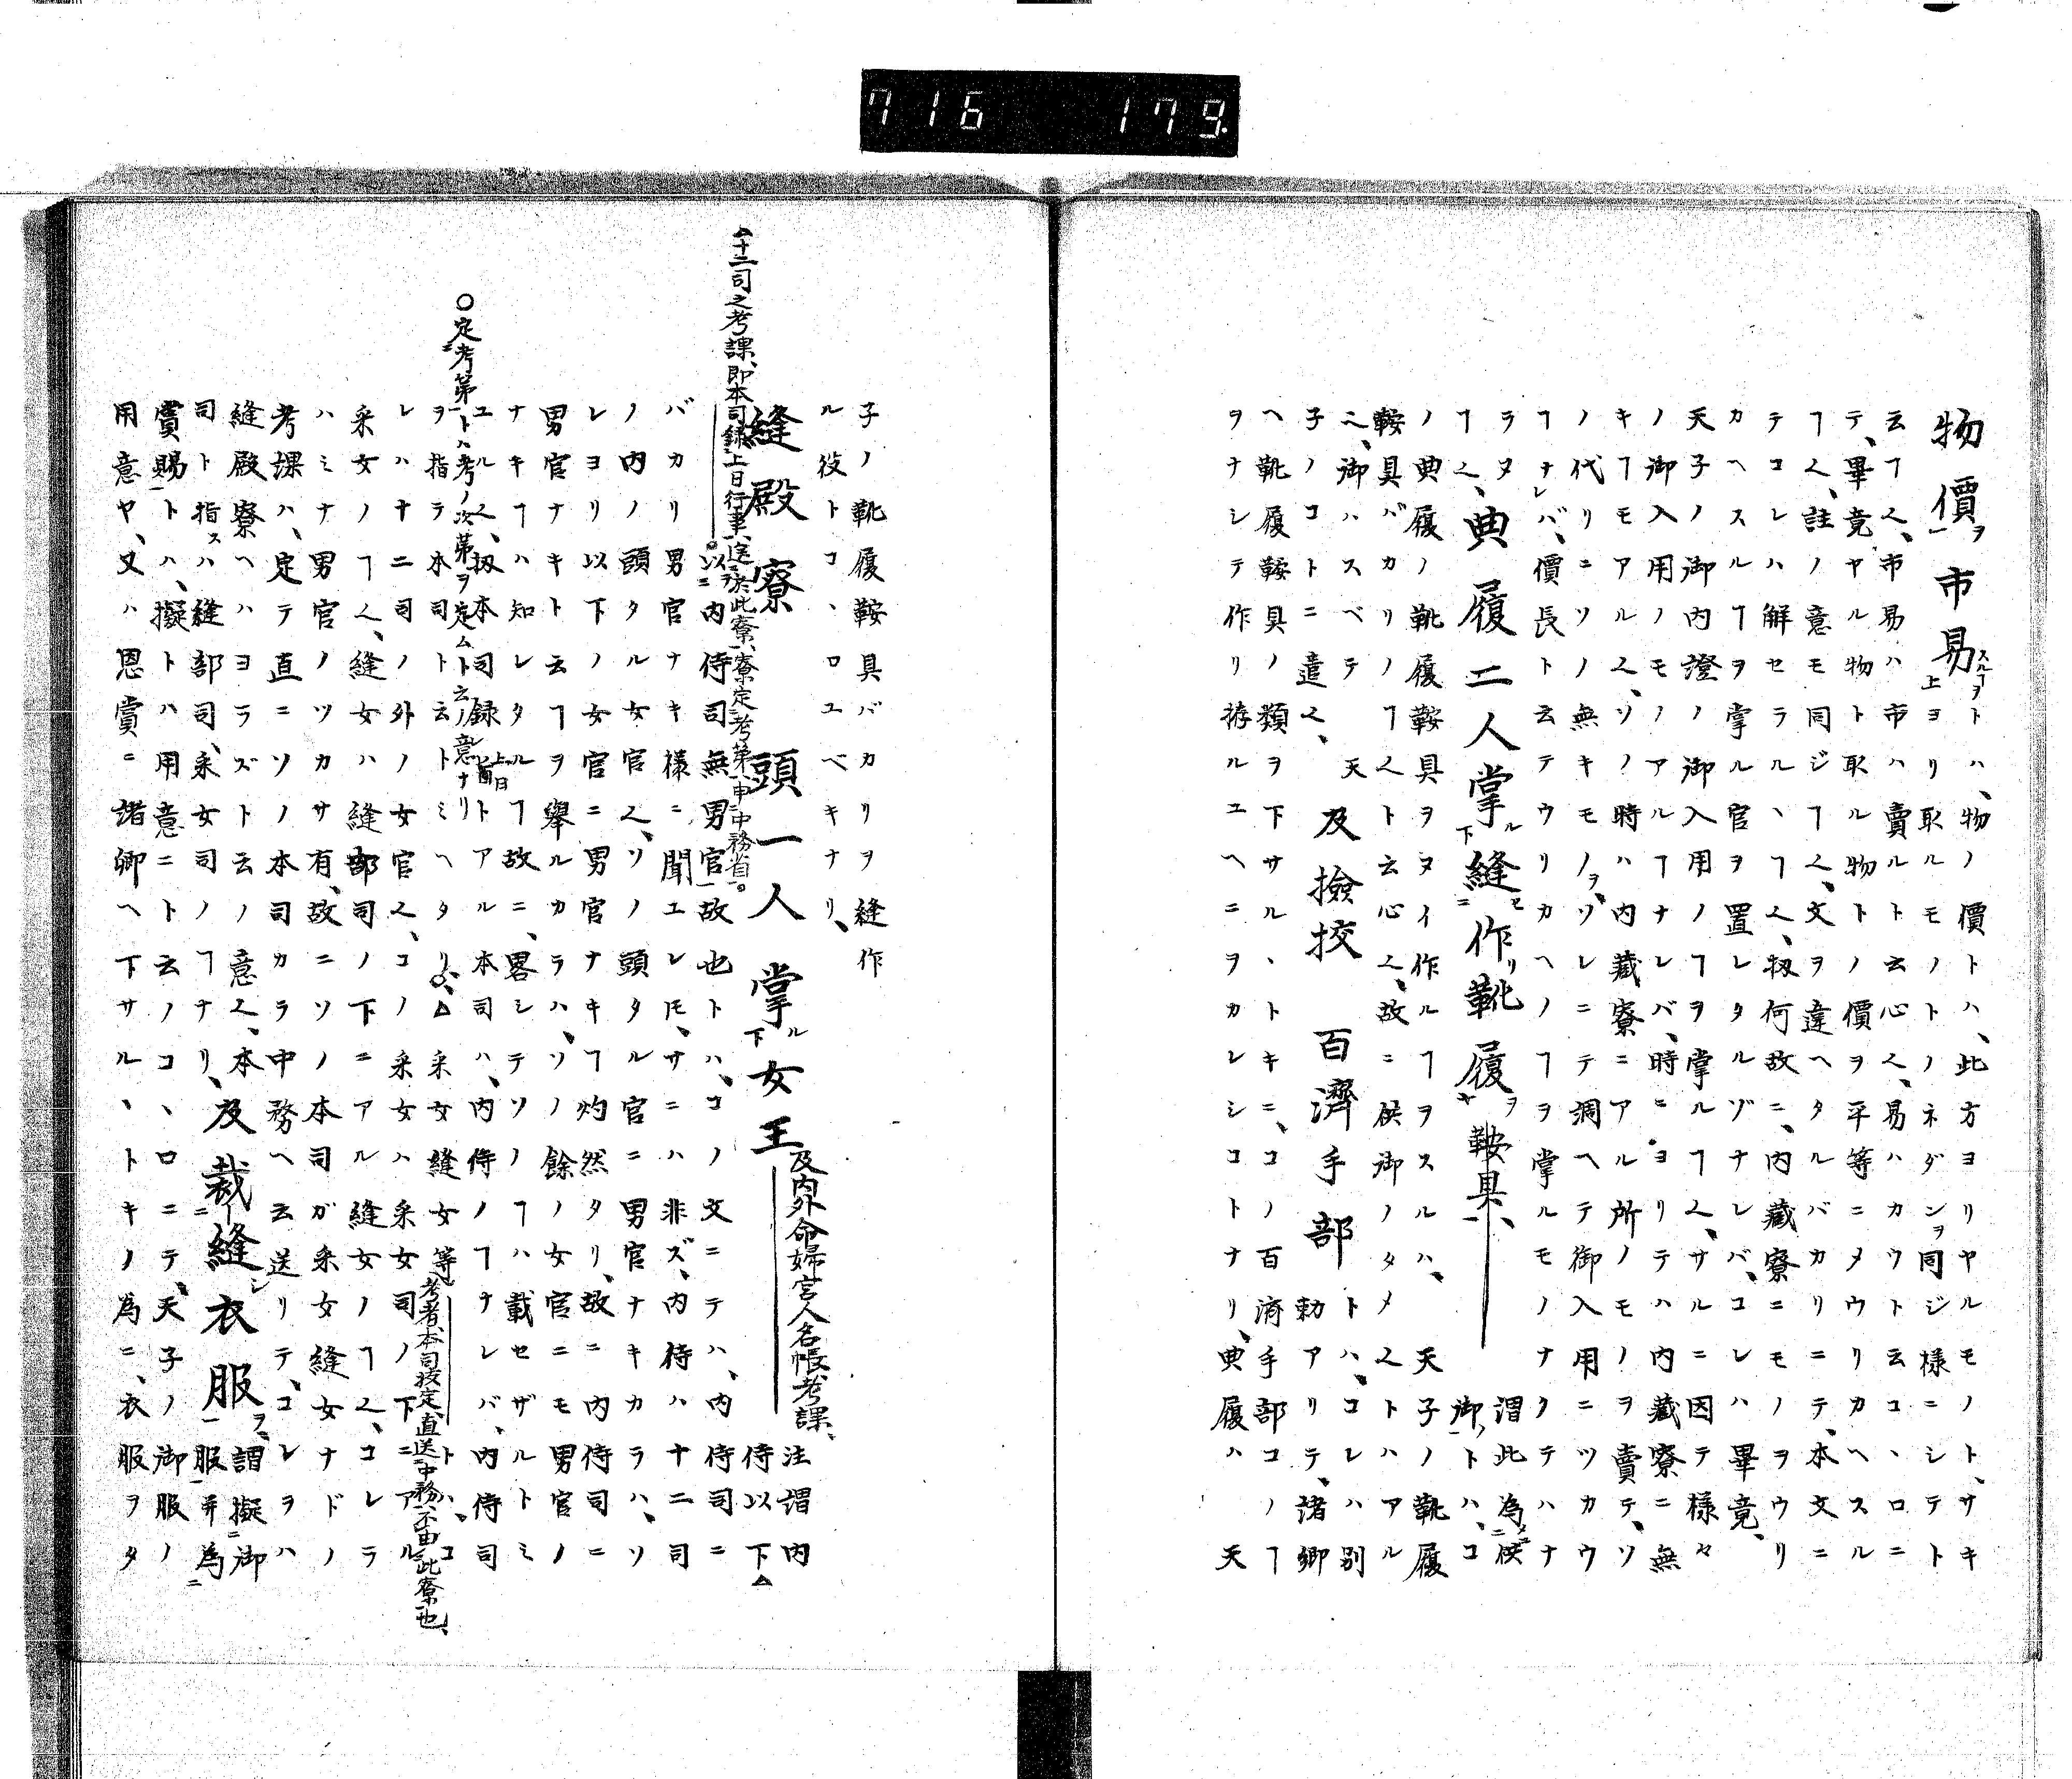 716 179
物價ヲ市易スルヿヲトハ、物ノ價トハ、此方ヨリヤルモノト、サキ
上ヨリ取ルモノトノネダンヲ同ジ様ニシテト
云ヿ也、市易ハ市ハ賣ルト云心也、易ハカウト云コヽロニ
テ、畢竟ヤル物ト取ル物トノ價ヲ平等ニメウリカヘスル
ヿ也、註ノ意モ同ジヿ也、文ヲ違ヘタルバカリニテ、本文ニ
テコレハ解セラルヽヿ也、扨何故ニ、内藏寮ニモノヲウリ
カヘスルヿヲ掌ル官ヲ置レタルゾナレバ、コレハ畢竟、
天子ノ御内證ノ御入用ノヿヲ掌ルヿ也、サルニ因テ様々
ノ御入用ノモノアルヿナレバ、時ニヨリテハ内藏寮ニ無
キヿモアル也、ソノ時ハ内藏寮ニアル所ノモノヲ賣テ、ソ
ノ代リニソノ無キモノヲ、ソレニテ調ヘテ御入用ニツカウ
ヿナレバ、價長ト云テウリカヘノヿヲ掌ルモノナクテハナ
ラヌ
ヿ也、典履二人掌ル下縫ニセ作リ靴履ヲヤ鞍具、謂此為ニメニ供
御トハ、コ
ノ典履ノ靴履鞍具ヲヌイ作ルヿヲスルハ、天子ノ靴履
鞍具バカリノヿ也ト云心也、故ニ供御ノタメ也トハアル
ニ、御ハスベテ天及撿挍百濟手部トハ、コレハ別
子ノコトニ遣也、勅アリテ、諸卿
ヘ靴履鞍具ノ類ヲ下サルヽトキニ、コノ百濟手部コノヿ
ヲナシテ作リ拵ルユヘニヲカレシコトナリ、典履ハ天
子ノ靴履鞍具バカリヲ縫作
ル役トコヽロユベキナリ、
縫殿寮 頭一人掌ル下女王及内外命婦宮人名帳、考課、
注謂内
侍以下△
△十二司之考課、即本司録上日行事、送於此寮、寮定考第、申中務省。
○以ヲニ内侍司無男官故也トハ、コノ文ニテハ、内侍司ニ
バカリ男官ナキ様ニ聞エレモ、サニハ非ズ、内侍ハ十二司
ノ内ノ頭タル女官也、ソノ頭タル官ニ男官ナキカラハ、ソ
レヨリ以下ノ女官ニ男官ナキヿ灼然タリ、故ニ内侍司ニ
男官ナキト云ヿヲ擧ルカラハ、ソノ餘ノ女官ニモ男官ノ
ナキヿハ知レタルヿ故ニ、畧シテソノヿハ載セザルトミ
ユル也、扨本司録上日トアル本司ハ、内侍ノヿナレバ、内侍司
ヲ指テ本司ト云トミヘタリ○、△采女縫女等考者、本司挍定、直送中務、不由此寮也、トハ、コ
○定ニ考第一トハ考ノ次第ヲ定ムト云ノ意ナリ
レハ十二司ノ外ノ女官也、コノ采女ハ采女司ノ下ニアル
采女ノヿ也、縫女ハ縫部司ノ下ニアル縫女ノヿ也、コレラ
ハミナ男官ノツカサ有、故ニソノ本司ガ采女縫女ナドノ
考課ハ、定テ直ニソノ本司カラ中務ヘ云送リテ、コレヲハ
縫殿寮ヘハヨラズト云ノ意也、本
司ト指スハ縫部司、采女司ノヿナリ、及裁縫シ衣服ヲ、謂擬ニ御
服一并為ニ
賞賜トハ、擬トハ用意ニト云ノコヽロニテ、天子ノ御服ノ
用意ヤ、又ハ恩賞ニ諸卿ヘ下サルヽトキノ為ニ、衣服ヲタ